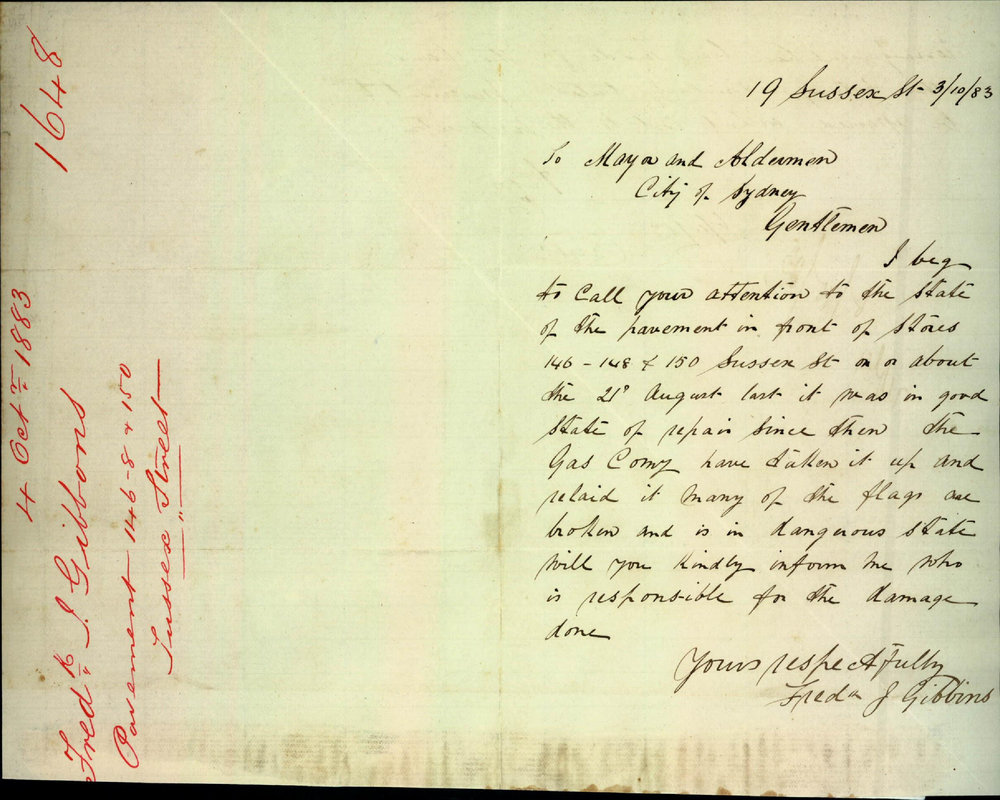 1648
4 Octr 1883
Fredk J. Gibbons
Pavement 146-8 & 150
Sussex Street
19 Sussex St 3/10/83
To Mayor and Aldermen
City of Sydney
Gentlemen
I beg
to call your attention to the state
of the pavement in front of Stores
146 - 148 & 150 Sussex St on or about
the 21st August last it was in good
state of repair since then the
Gas Comy have taken it up and
relaid it many of the flags are
broken and is in dangerous state
will you kindly inform me who
is responsible for the damage
done
Yours respectfully
Fredk J Gibbins